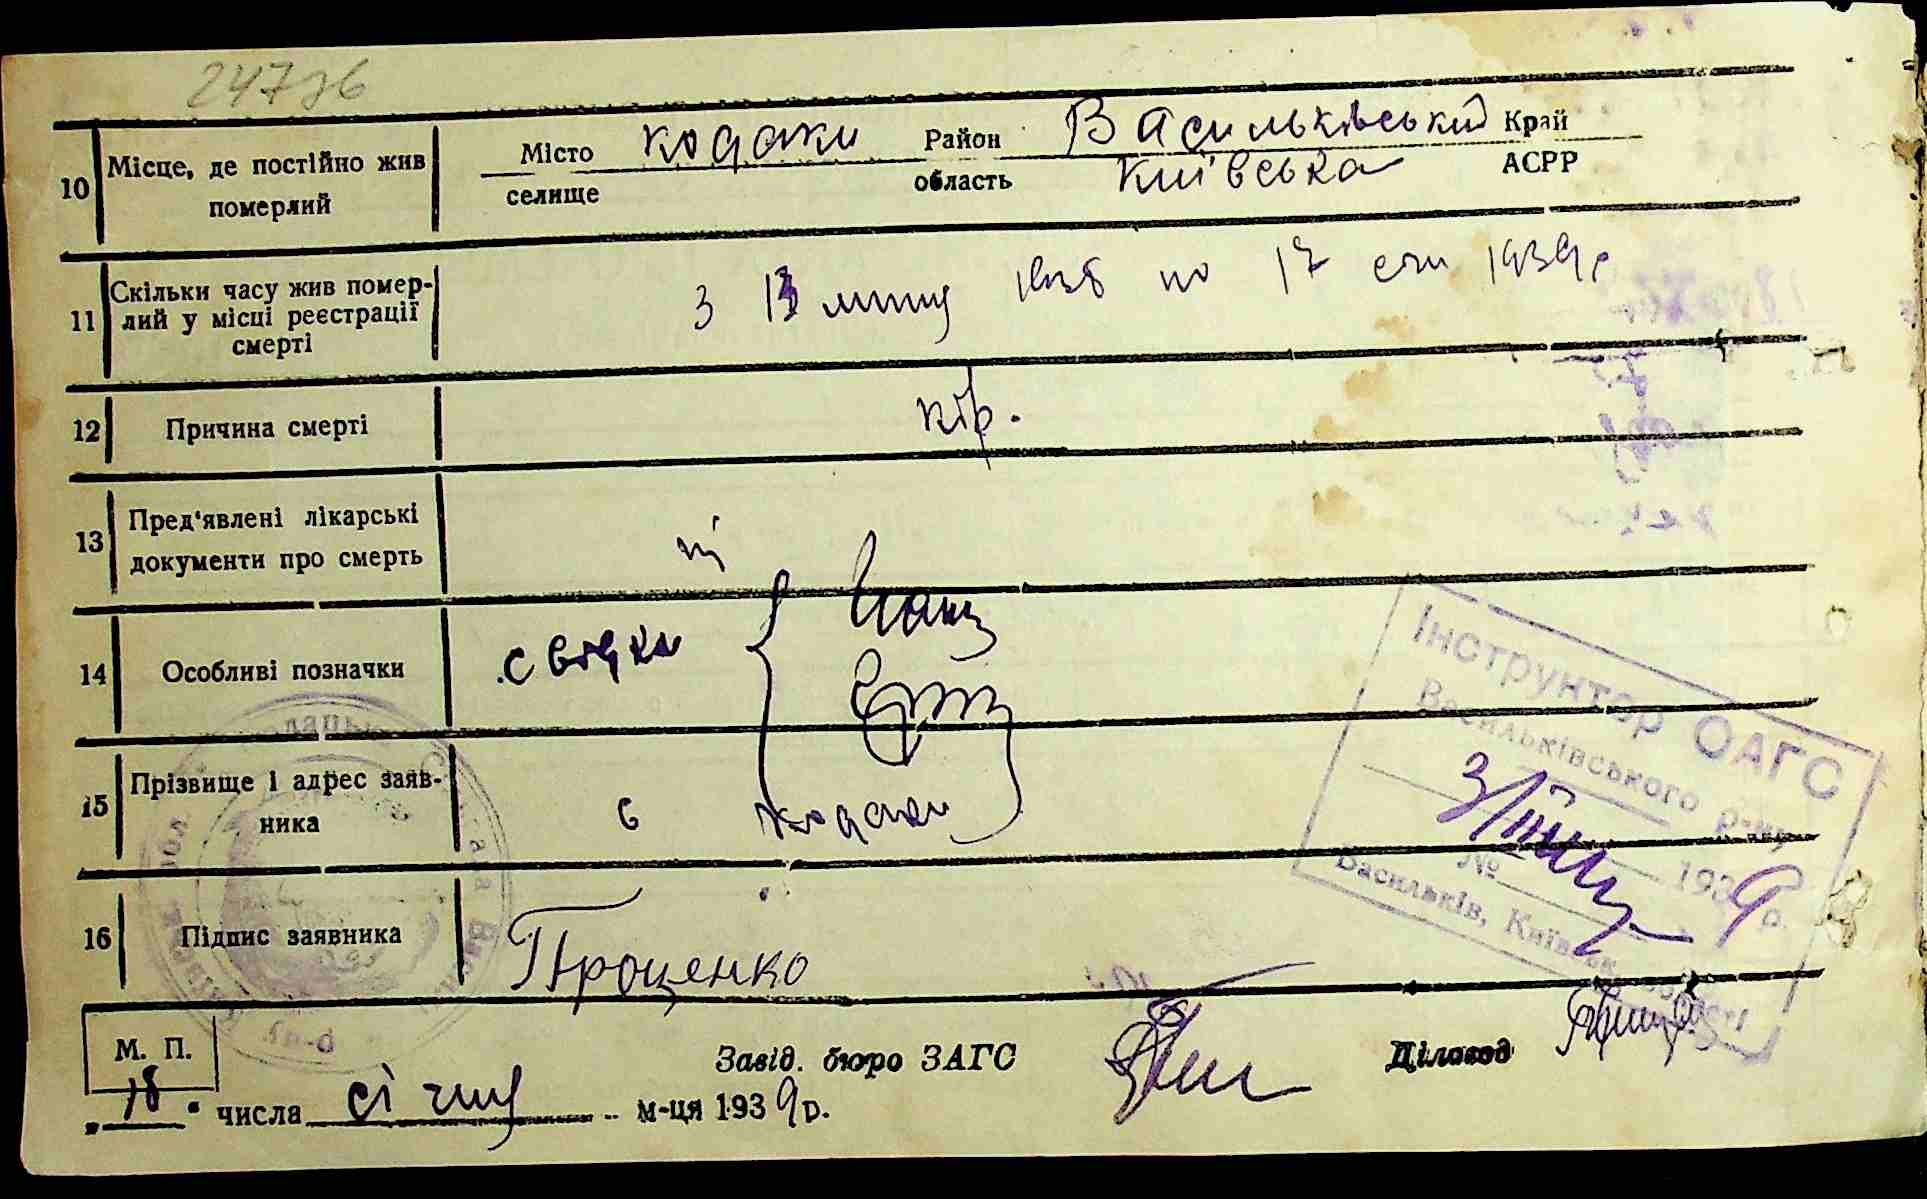 10 Місце, де постійно жив померлий
Місто селище Кодаки Район область Васильківський Київська Край АСРР
11 Скільки часу жив помер-
лий у місці реєстрації
смерті
З 13 по 17 січн 1939 р
12 Причина смерті
кір.
13 Пред'явлені лікарські
документи про смерть
ні
14 Особливі позначки
свідки
15 Прізвище і адрес заяв-
ника
с Кодаки
16 Підпис заявника
Проценко
Інструктор ОАГС
Васильківського р-ну
№ 1939 р.
Васильків, Київськ. області
М. П.
Завід. бюро ЗАГС
Діловод
„18" числа січня м-ця 1939 р.